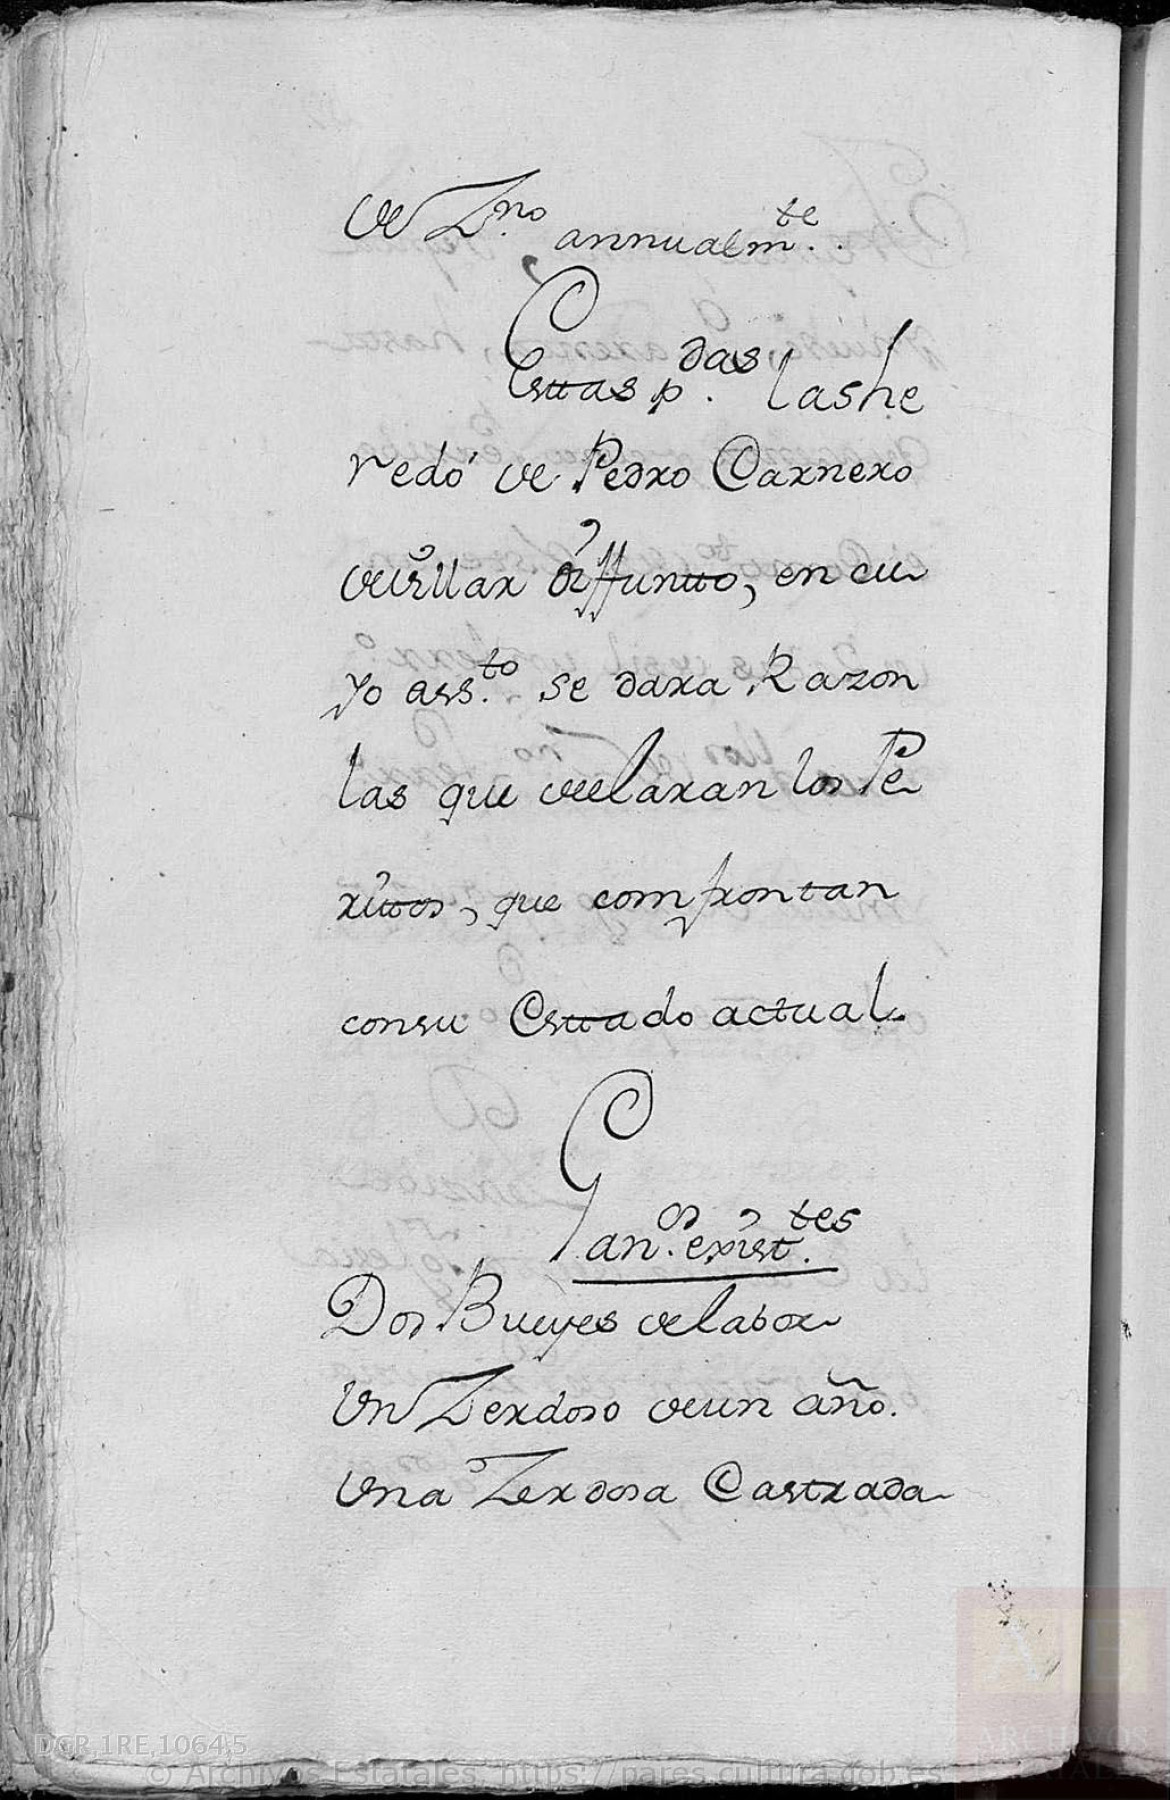 de Zno. annualmte..
Esttas pdas. las he
redó de Pedro Carnero
de Villar diffuntto, en cu
yo assto. se dara Razon
las que declaran los Pe
rittos, que comfrontan
con su Esttado actual.
Ganos. existtes.
Dos Bueyes de labor
Un Zerdoso de un año.
Una Zerdosa Castrada
DGR,1RE,10645
© Archivos Estatales, https://pares.cultura.gob.es
AE
ARCHIVOS